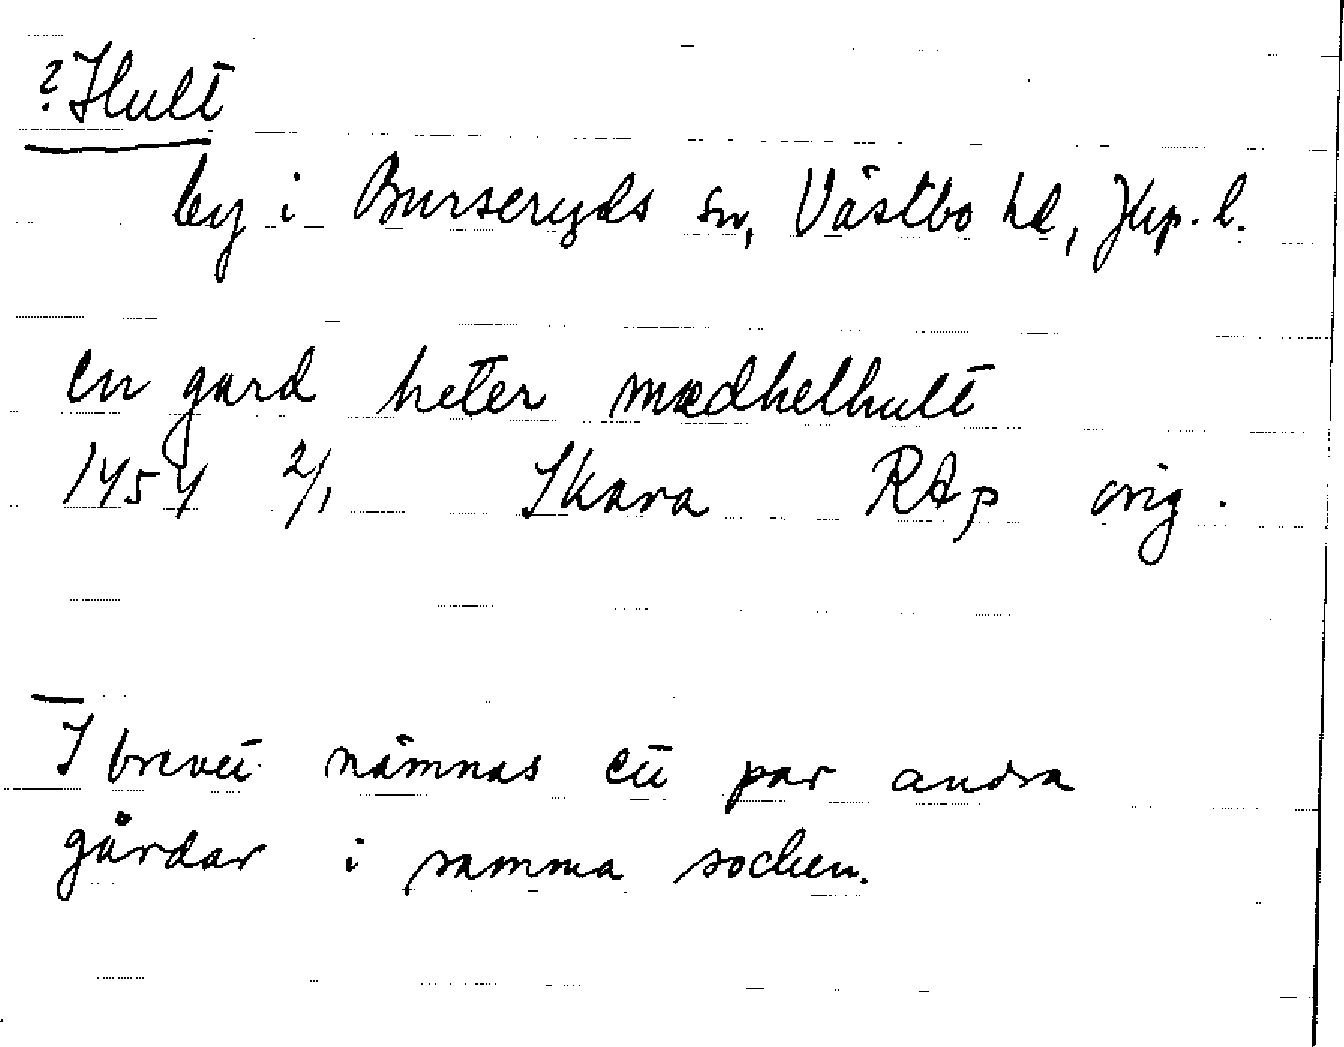 ? Hult
by i Burseryds sn, Västbo hd, Jkp. l.
en gard heter mædhelhult
1454 2/1 Skara RAp orig.
I brevet nämnas ett par andra
gårdar i samma socken.